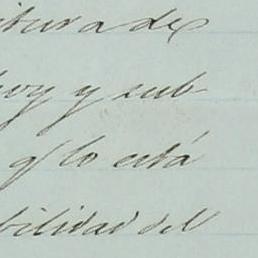 itura de
hoy y sub-
q lo está
bilidad del